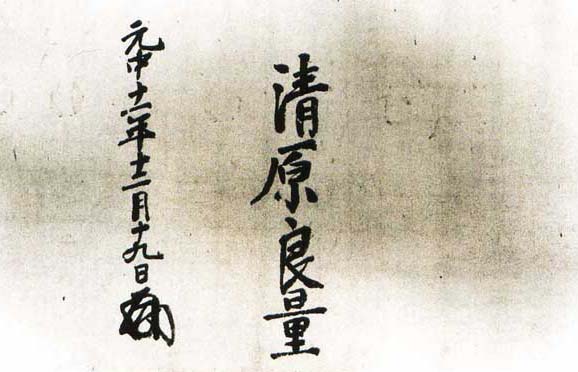 清原良量
元中十一年十二月十九日